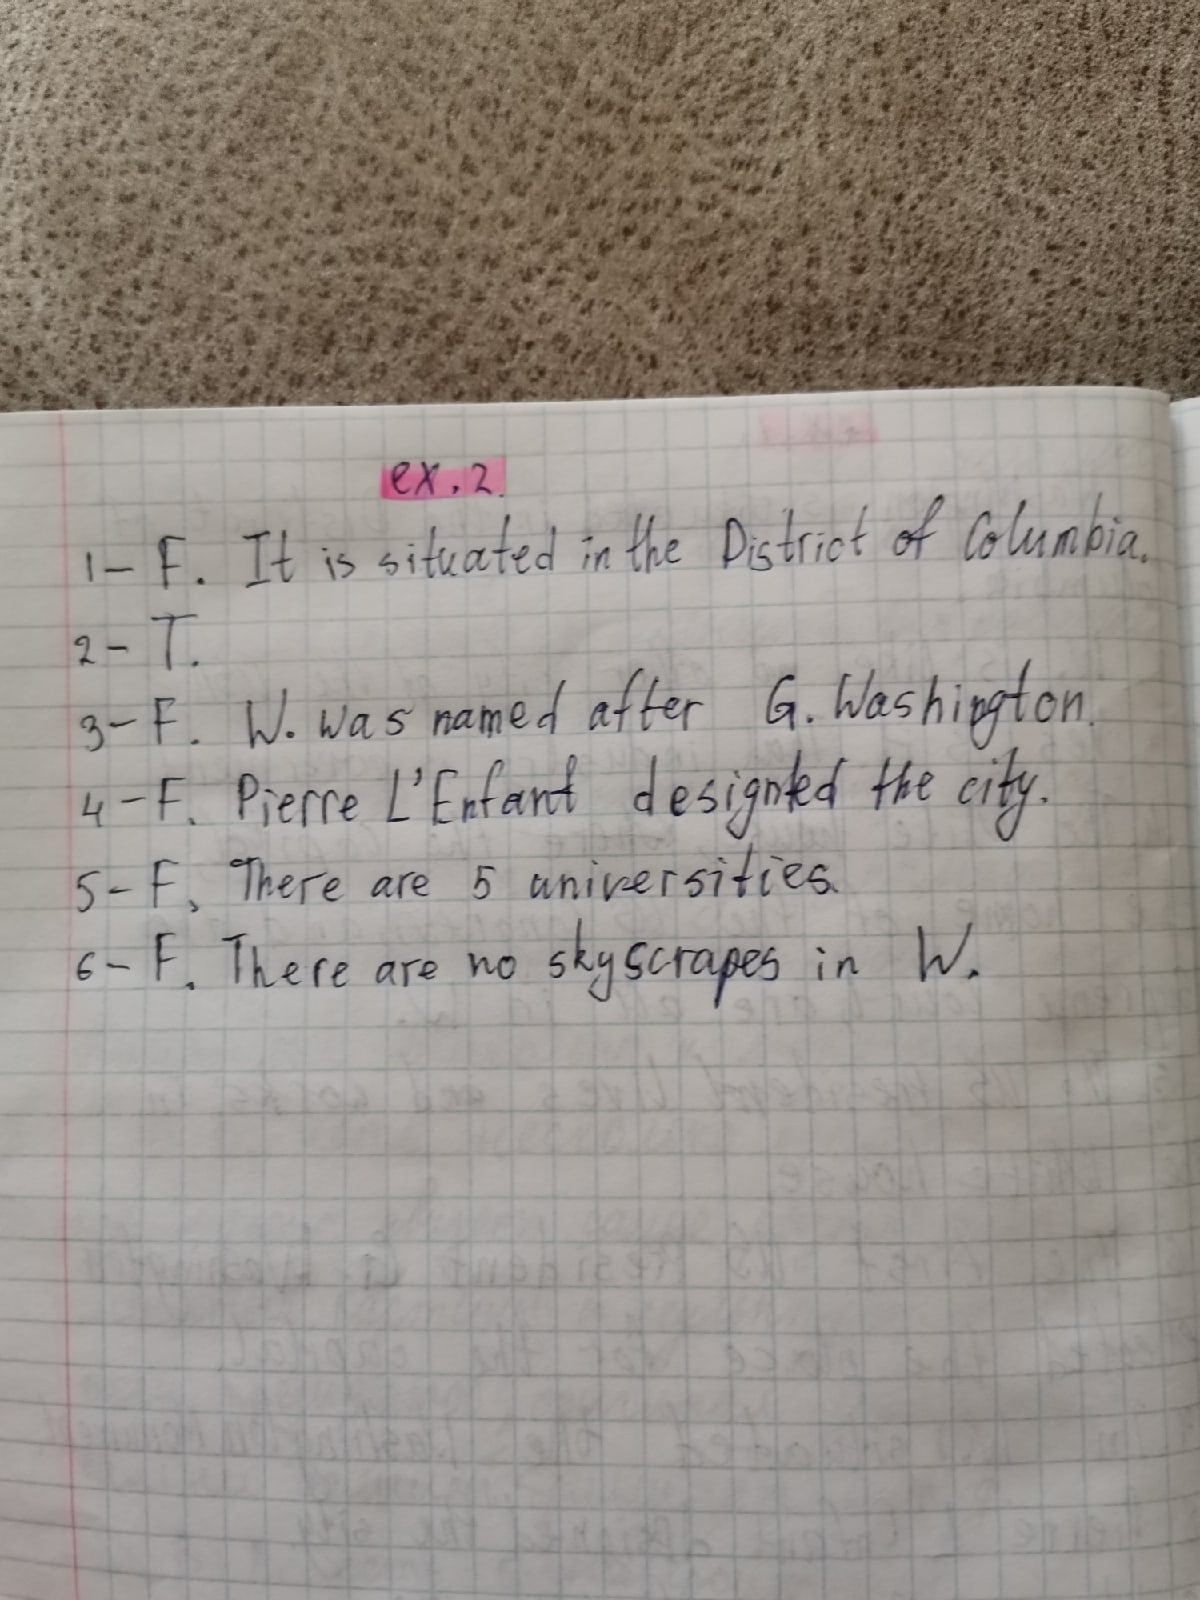 ex. 2.
1- F. It is situated in the District of Columbia.
2- T.
3- F. W. was named after G. Washington.
4- F. Pierre L'Enfant designted the city.
5- F. There are 5 universities.
6- F. There are no skyscrapes in W.